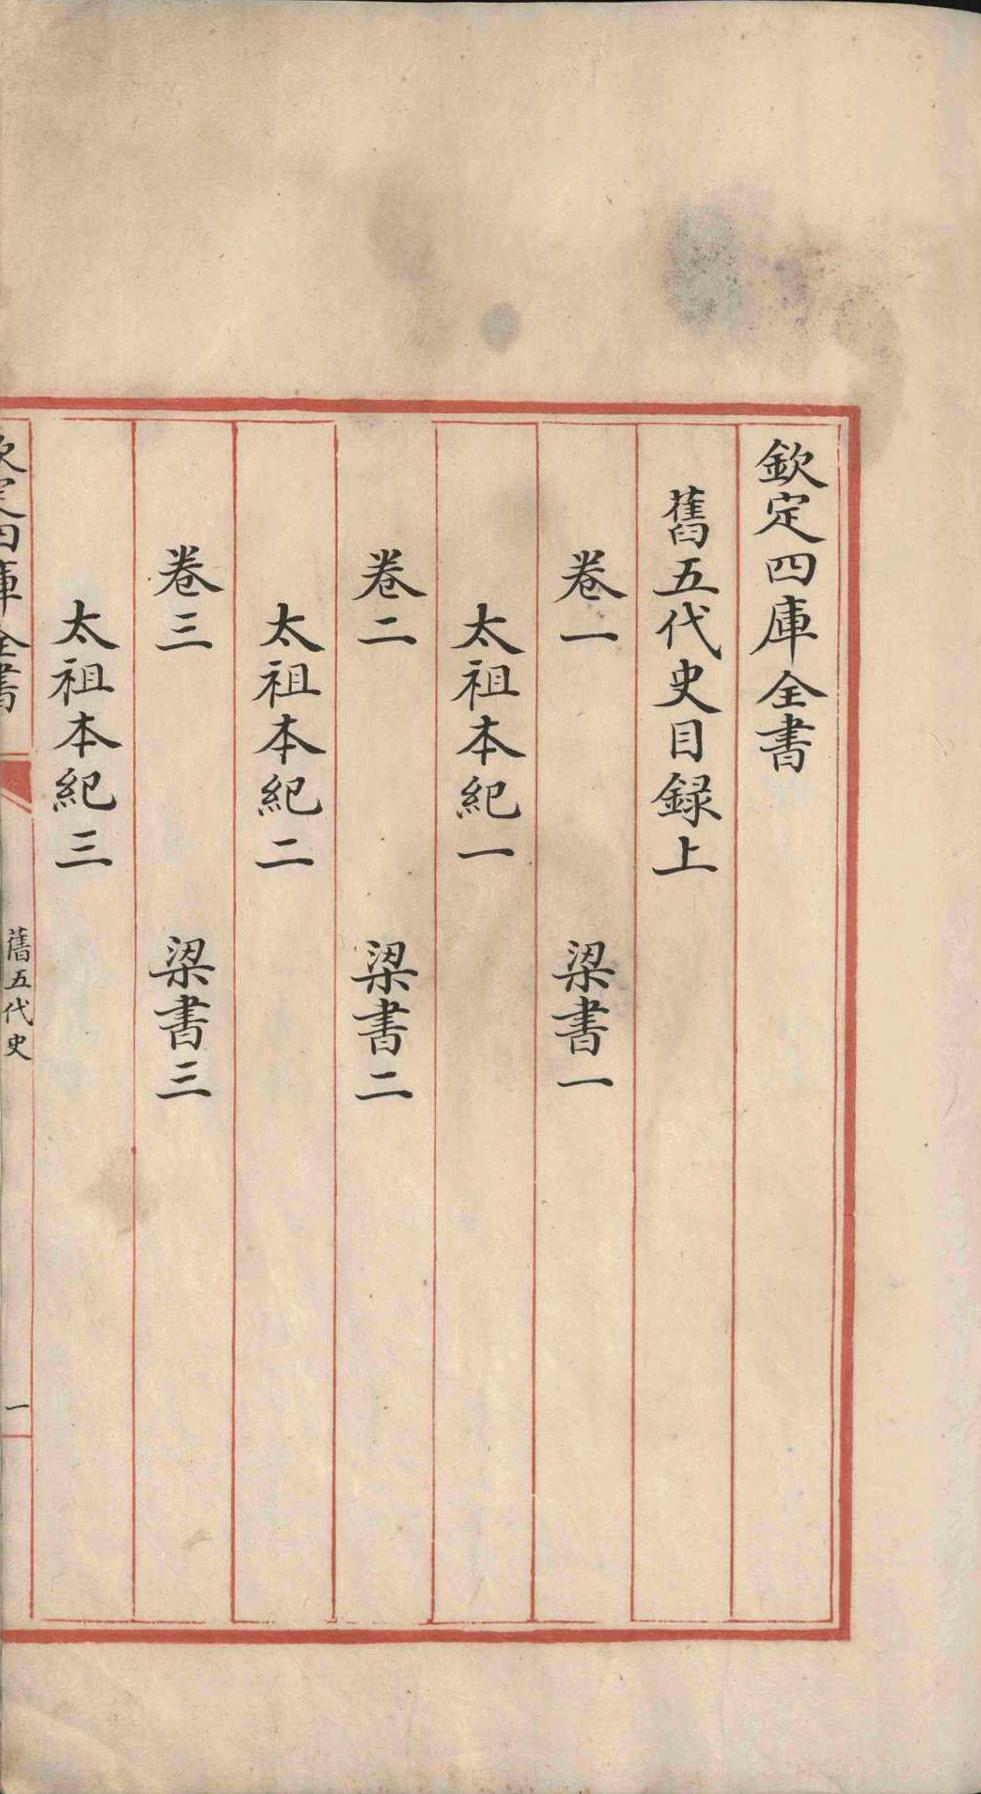 欽定四庫全書
舊五代史目録上
卷一 梁書一
太祖本紀一
卷二 梁書二
太祖本紀二
卷三 梁書三
太祖本紀三
欽定四庫全書 舊五代史 一